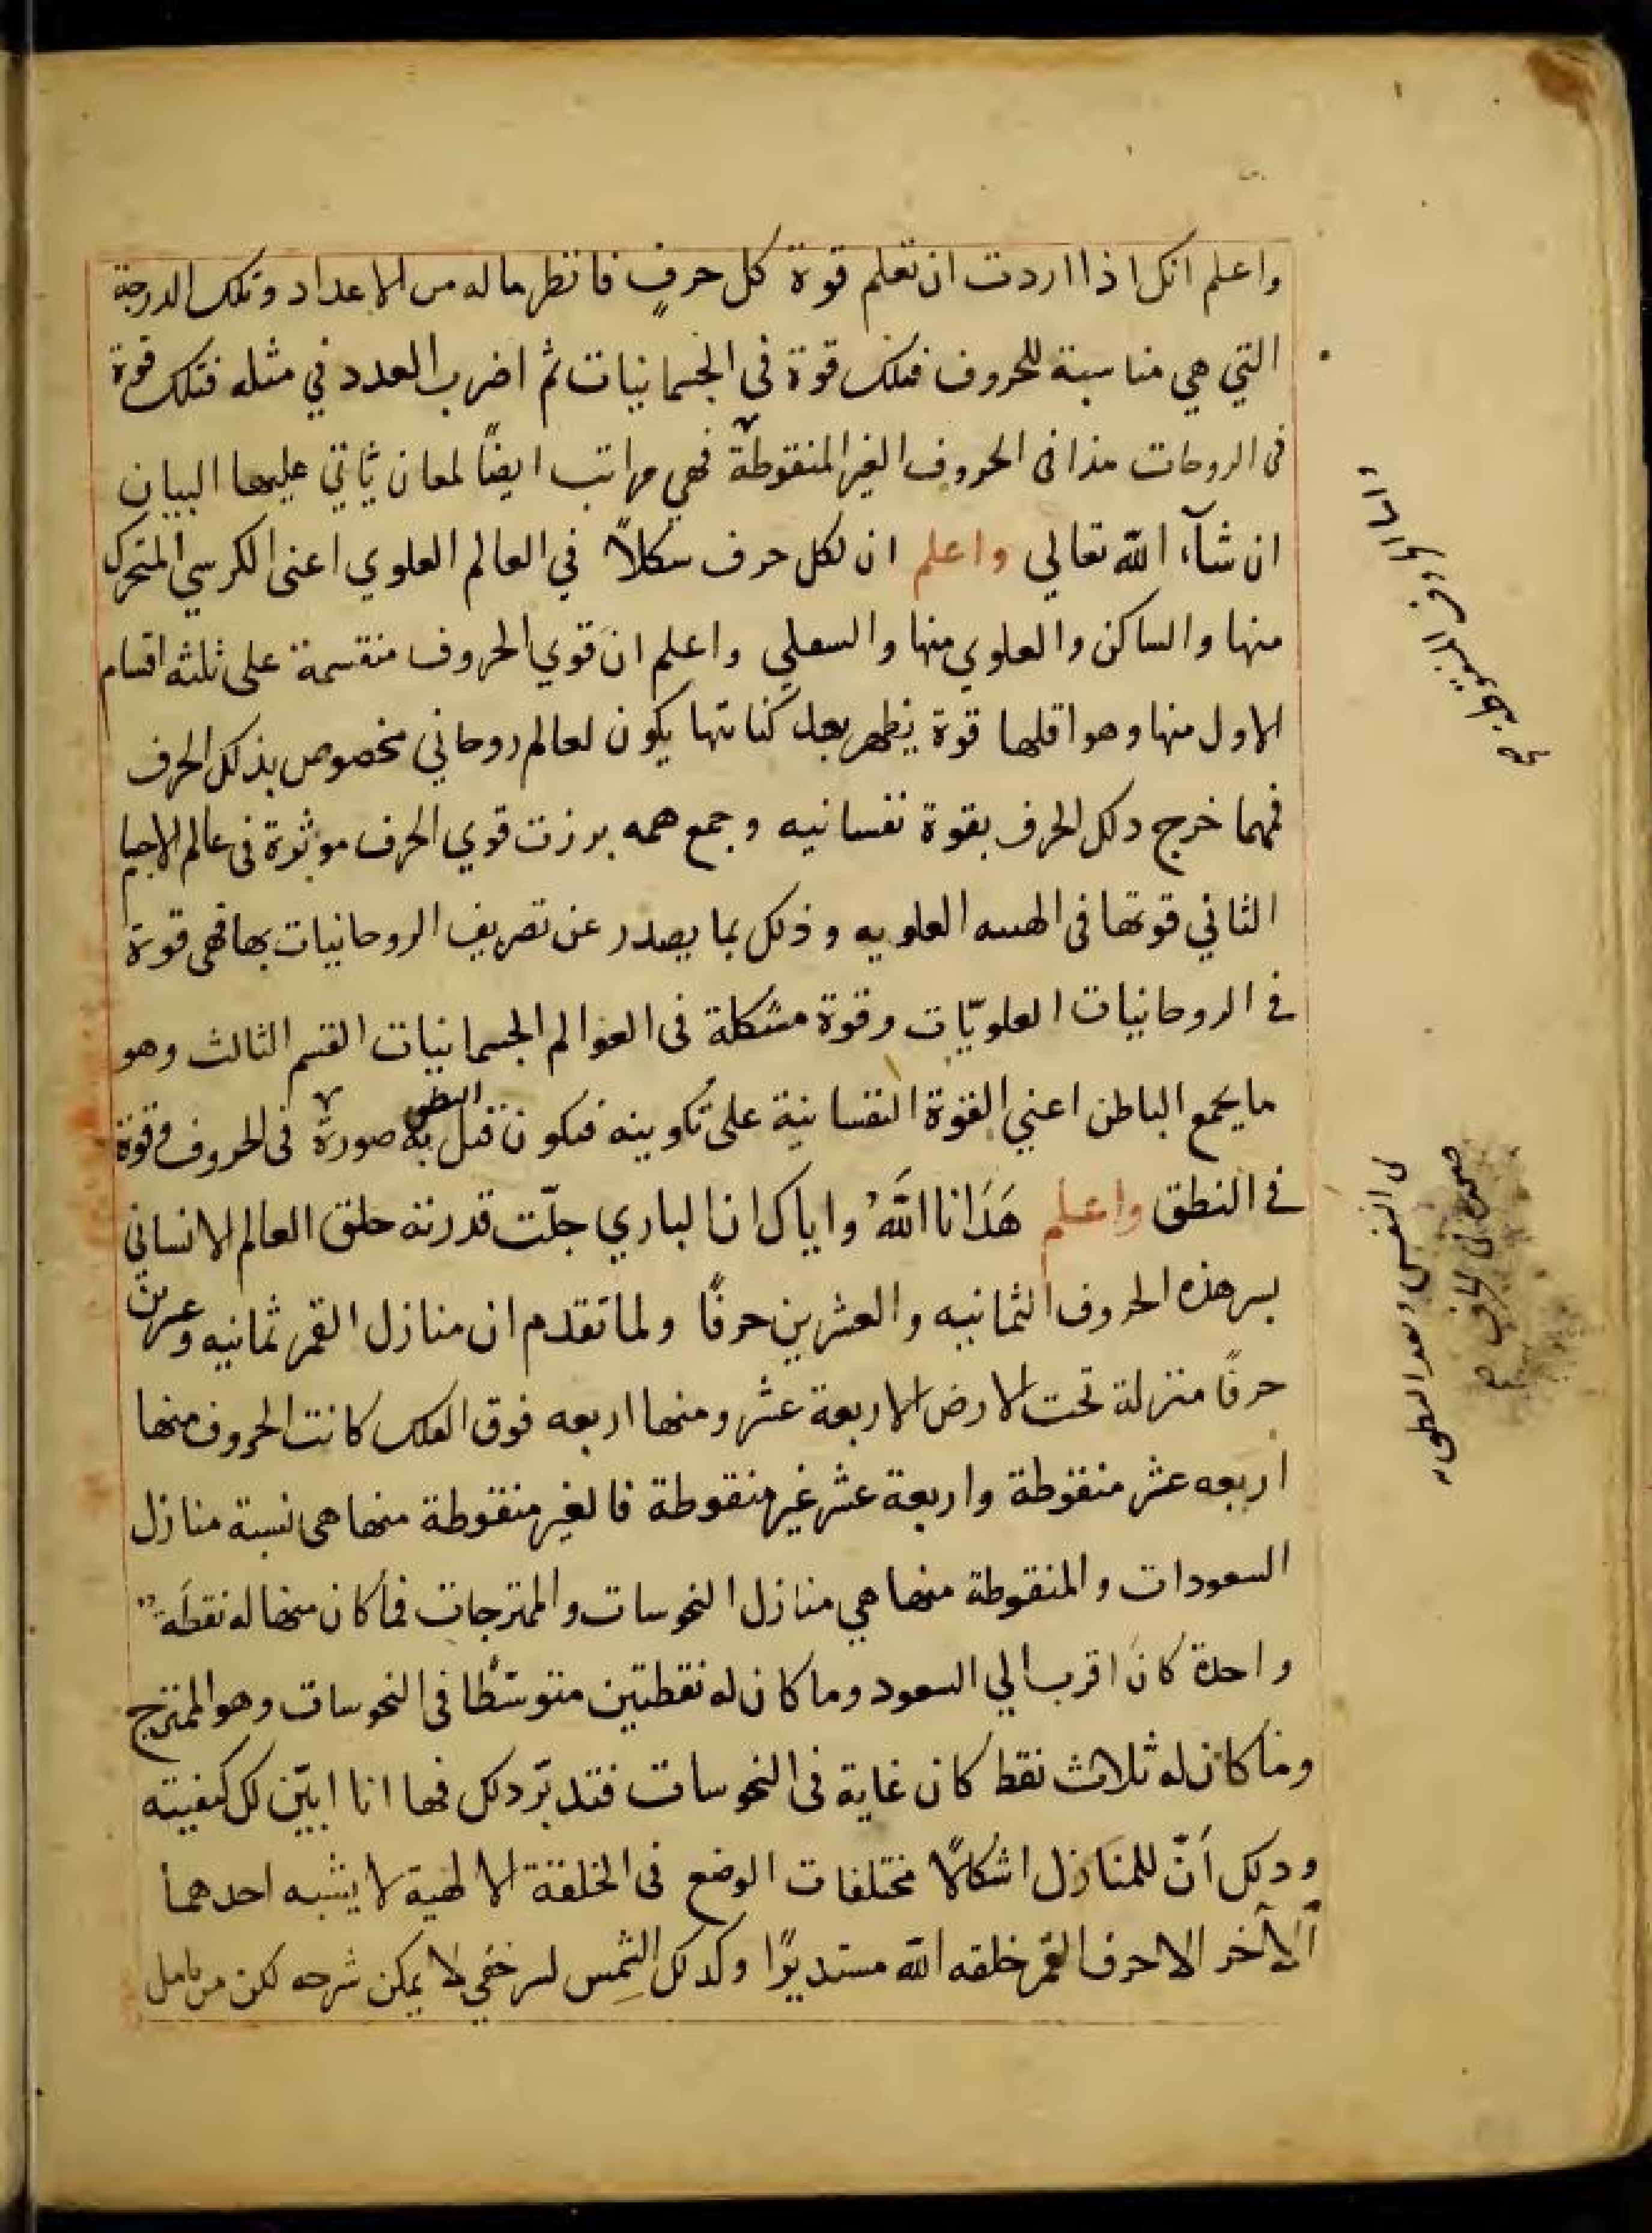 واعلم انك اذا اردت ان تعلم قوة كل حرفٍ فانظر ما له من الاعداد وتلك الدرجة
التي هي مناسبة للحروف فتلك قوة فى الجسمانيات ثم اضرب العدد في مثله فتلك قوة
فى الروحات هذا فى الحروف الغير المنقوطة فهي مراتب ايضًا لمعان ثاتي عليها البيان
ان شآء الله تعالي واعلم ان لكل حرف سكلاً في العالم العلوي اعنى الكرسي المتحرك
منها والساكن والعلوي منها والسعلي واعلم ان قوي الحروف منقسمة على ثلثه اقسام
الاول منها وهو اقلها قوة يظهر بعد كتابتها يكون لعالم روحاني مخصوص بذلك الحرف
فمهما خرج دلك الحرف بقوة نفسانيه وجمع همه برزت قوي الحرف موثرة فى عالم الاجسام
الثاني قوتها فى الهسه العلويه وذلك بما يصدر عن تصريف الروحانيات بها فهى قوة
في الروحانيات العلويّات وقوة مشكلة فى العوالم الجسمانيات القسم الثالث وهو
ما يجمع الباطن اعني القوة النفسانية على تكوينه فتكون قبل النطق به صورة فى الحروف وقوة
في النطق واعلم هَدَانا اللهُ واياك ان الباري جلّت قدرته خلق العالم الانساني
بسر هذه الحروف الثمانيه والعشرين حرفًا ولما تقدم ان منازل القمر ثمانيه وعشرين
حرفًا منزلة تحت الارض الاربعة عشر ومنها اربعه فوق الفلك كانت الحروف منها
اربعه عشر منقوطة واربعة عشر غير منقوطة فالغير منقوطة منها هى نسبة منازل
السعودات والمنقوطة منها هي منازل النحوسات والممتزجات فما كان منها له نقطة
واحدة كان اقرب الي السعود وما كان له نقطتين متوسّطًا فى النحوسات وهو الممتزج
وما كان له ثلاث نقط كان غاية فى النحوسات فتدبّر دلك فها انا ابيّن لك كيفيته
ودلك أنّ للمنازل اشكالاً مختلفات الوضع فى الخلقة الالهية لا يشبه احدهما
الآخر الا حرف القمر خلقه الله مستديرًا وكدلك الشمس لسر خفي لا يمكن شرحه لكن من تامل
فى النفس وبعد النطق به